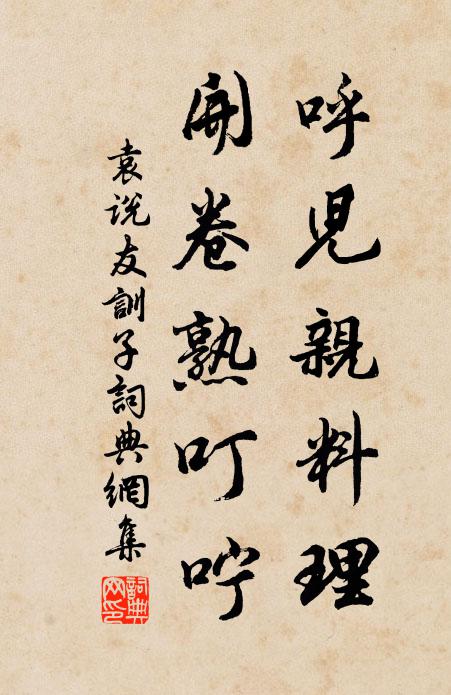 呼兒親料理
開卷熟叮嚀
袁說友訓子詞典網集
詞典網印